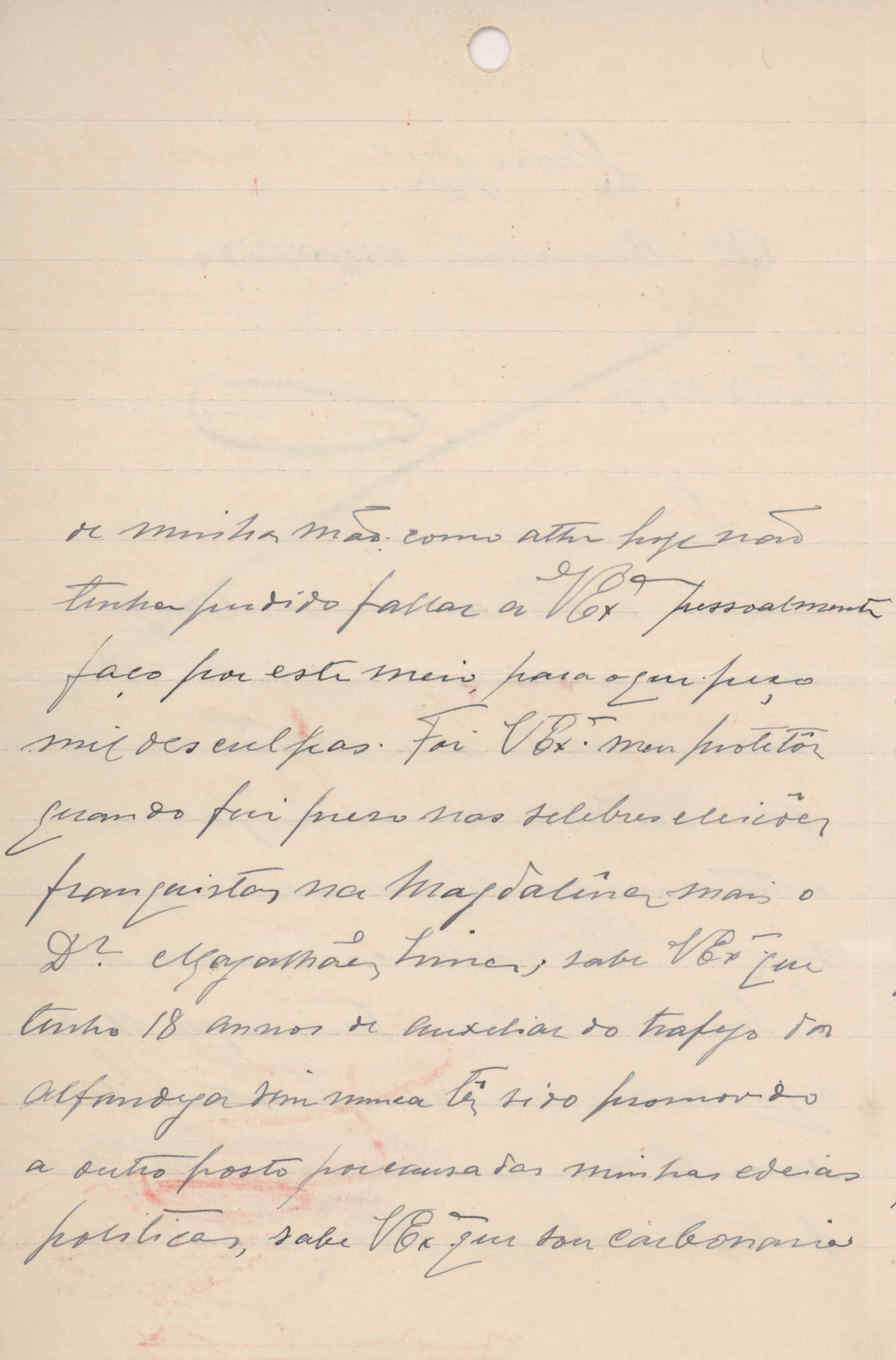 de minha mão. como athe hoje não
tenha pudido fallar a VExª pessoalmente
faço por este meio, para o que peço
mil desculpas. Foi VExª meu protetôr
quando fui prezo nas selebres eleicões
franquistas na Magdalêna mais o
Dr. Magalhães Lima, sabe VExª que
tenho 18 annos de auxeliar do trafego da
alfandega sem nunca têr sido promovido
a outro posto por causa das minhas edeias
politicas, sabe VExª que sou carbonario